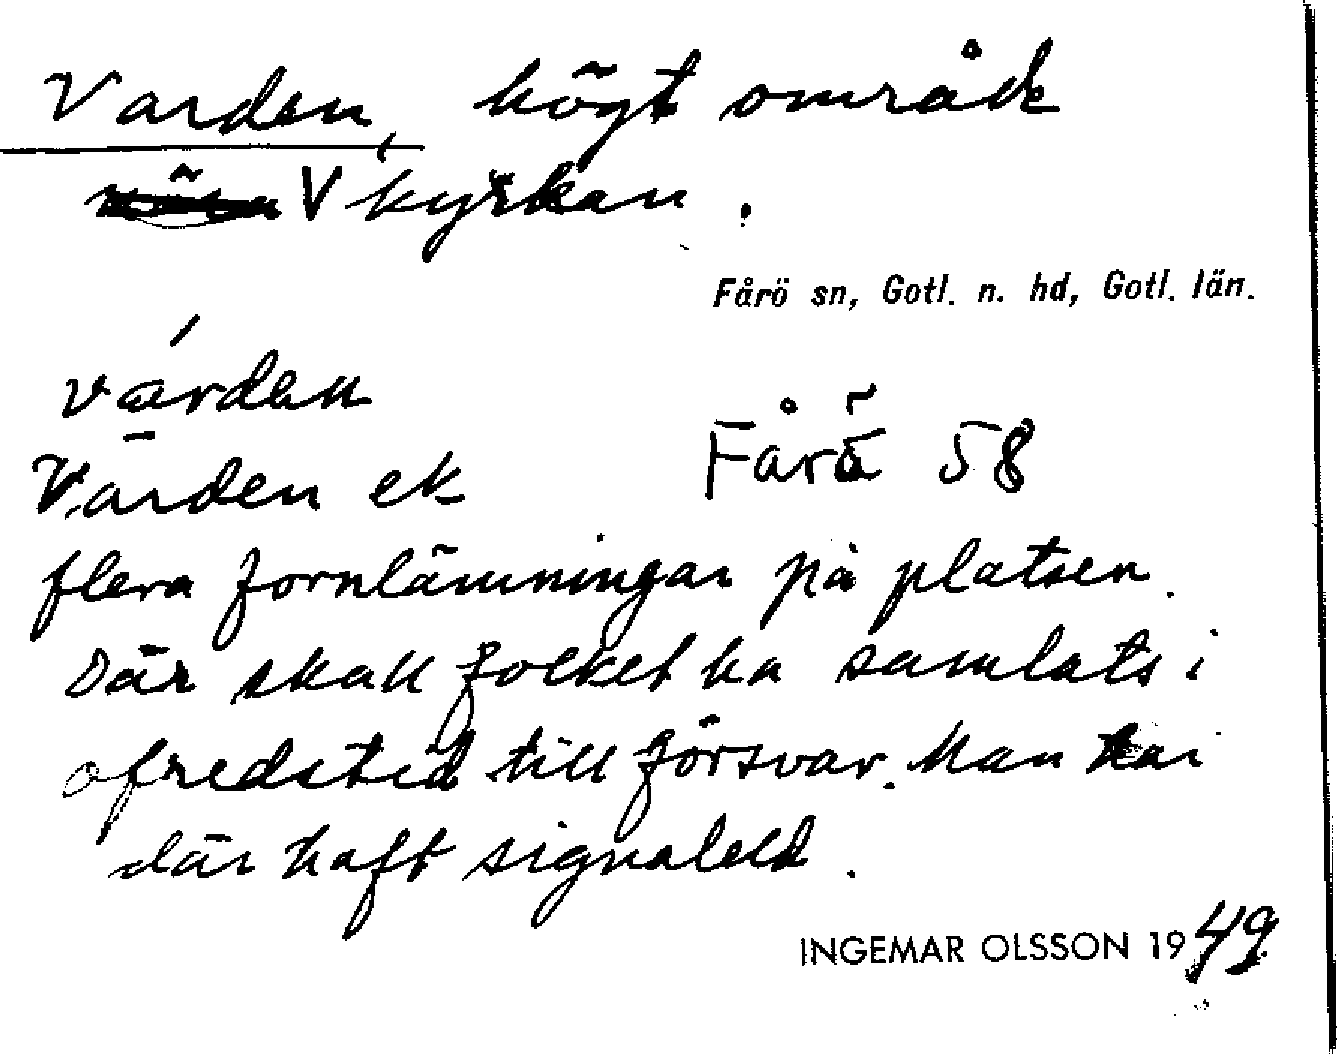 Varden, högt område
V kyrkan.
Fårö sn, Gotl. n. hd, Gotl. län.
várden
Varden ek Fårö 58
flera fornlämningar på platsen.
Där skall folket ha samlats i
ofredstid till försvar. Man har
där haft signaleld.
INGEMAR OLSSON 1949